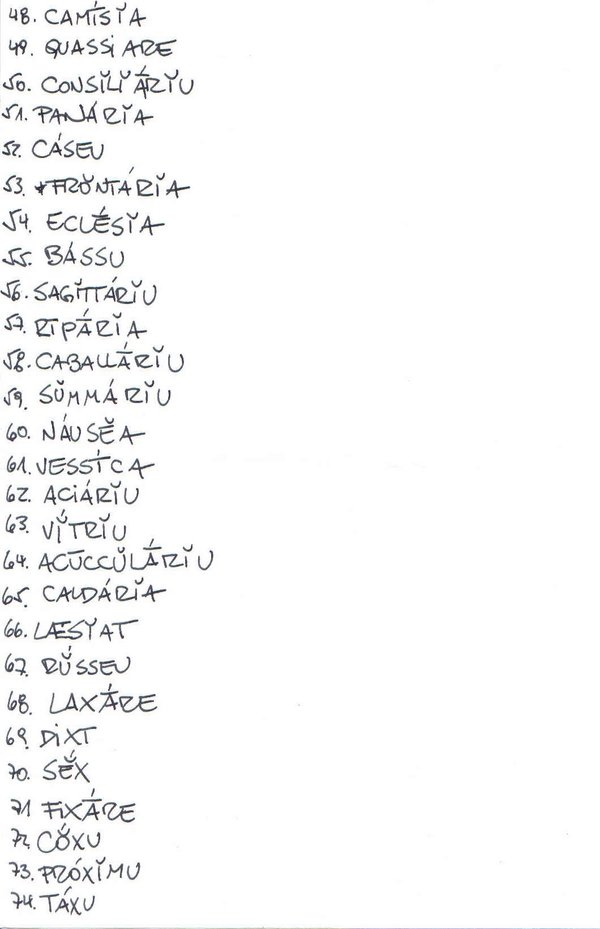 48. CAMÍSĬA
49. QUASSIARE
50. CONSĬLĬĀ́RĬU
51. PANÁRĬA
52. CÁSEU
53. *FRŎNTÁRĬA
54. ECLÉSĬA
55. BÁSSU
56. SAGĬTTÁRĬU
57. RIPĀ́RĬA
58. CABALLĀ́RĬU
59. SŬMMÁRĬU
60. NÁUSĔA
61. VESSĪ́CA
62. ACIÁRĬU
63. VĬ́TRĬU
64. ACŪCCŬLĀ́RĬU
65. CALDÁRĬA
66. LÆSYAT
67. RŬ́SSEU
68. LAXĀ́RE
69. DIXI
70. SĔ́X
71 FIXĀ́RE
72. CŎ́XU
73. PRÓXĬMU
74. TÁXU